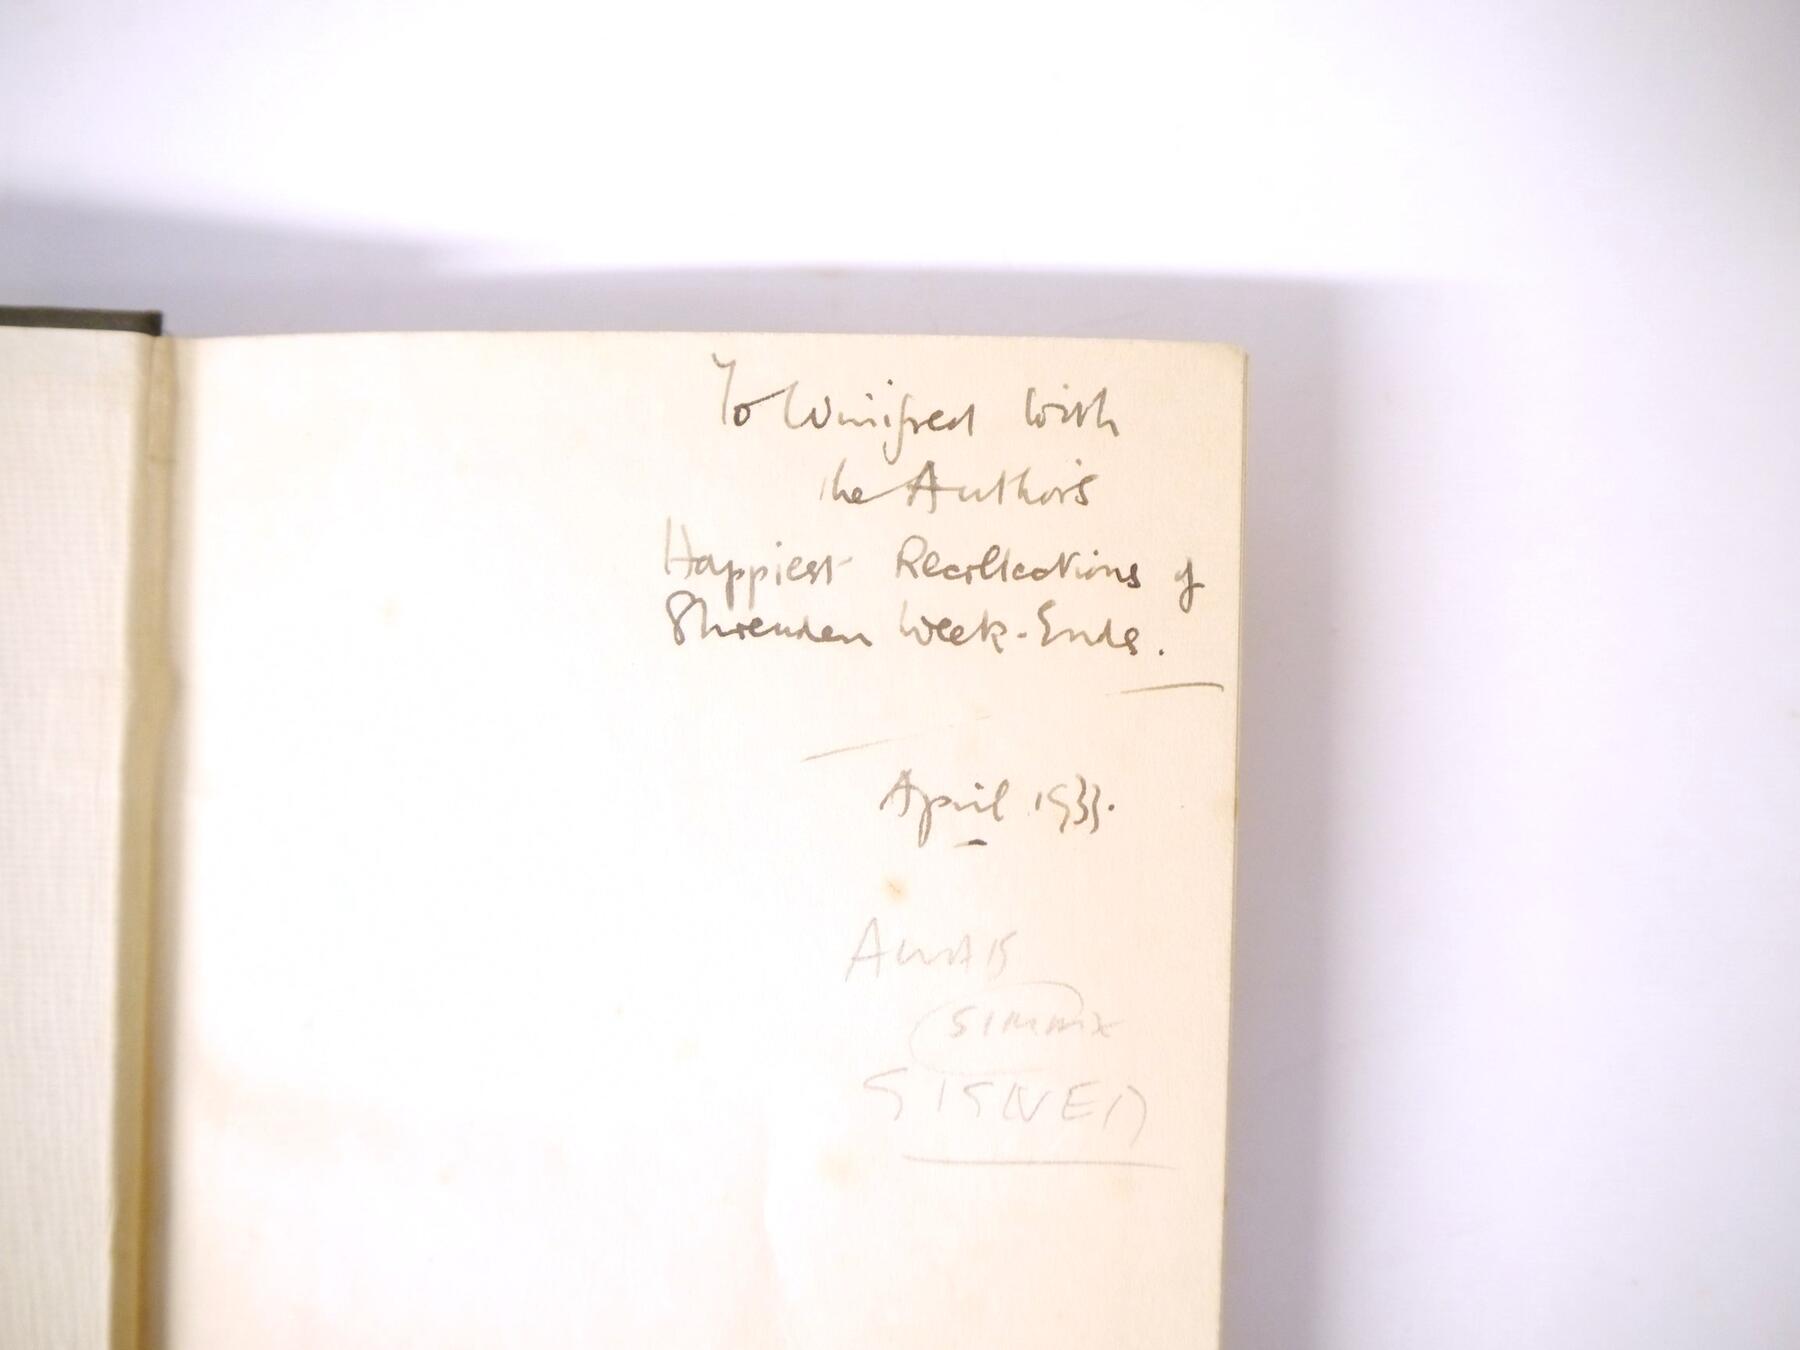 To Winifred with
the Author's
Happiest Recollections of
Shrenden Week-Ends.
April 1933.
SIGNED